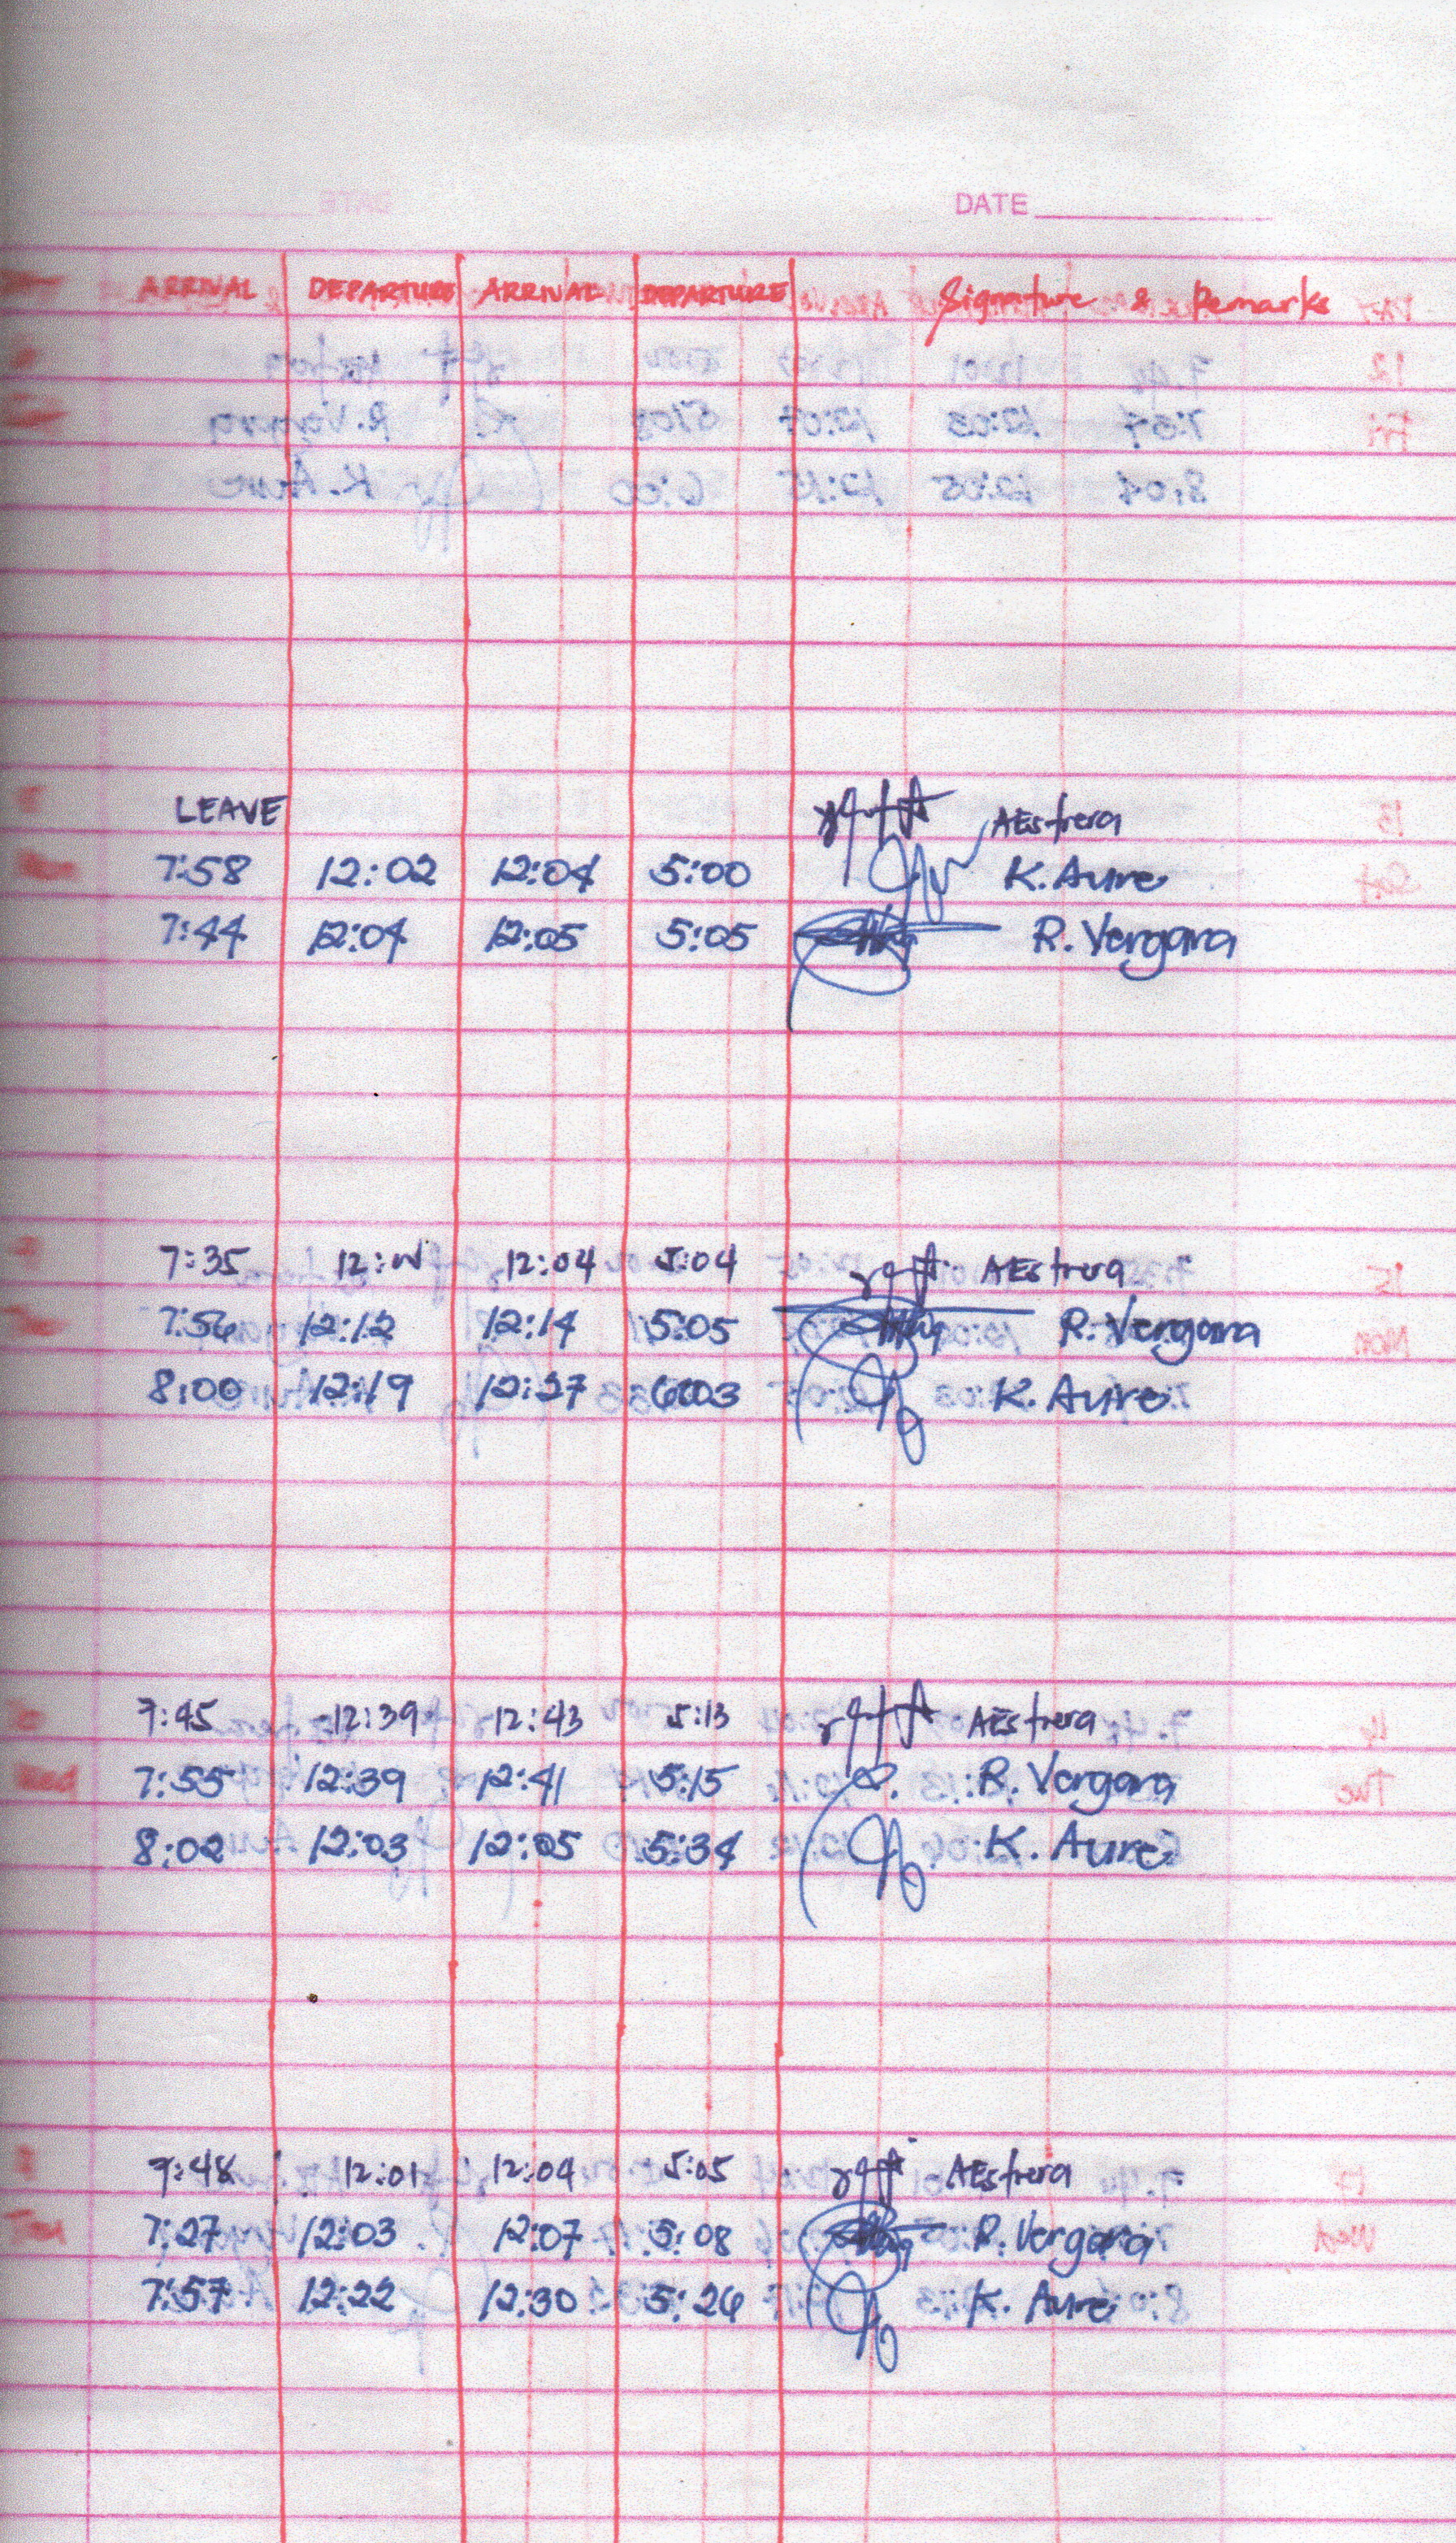 DATE
ARRIVAL DEPARTURE ARRIVAL DEPARTURE Signature & Remarks
LEAVE AEstrera
Mon 7:58 12:02 12:04 5:00 K. Aure
7:44 12:04 12:05 5:05 R. Vergara
7:35 12:04 5:04 AEstrera
Tue 7:56 12:12 12:14 5:05 R. Vergara
8:00 12:19 12:27 6:03 K. Aure
7:45 12:39 12:43 5:13 AEstrera
Wed 7:55 12:39 12:41 5:15 R. Vergara
8:02 12:03 12:05 5:34 K. Aure
7:48 12:01 12:04 5:05 AEstrera
7:27 12:03 12:07 5:08 R. Vergara
7:57 12:22 12:30 5:26 K. Aure